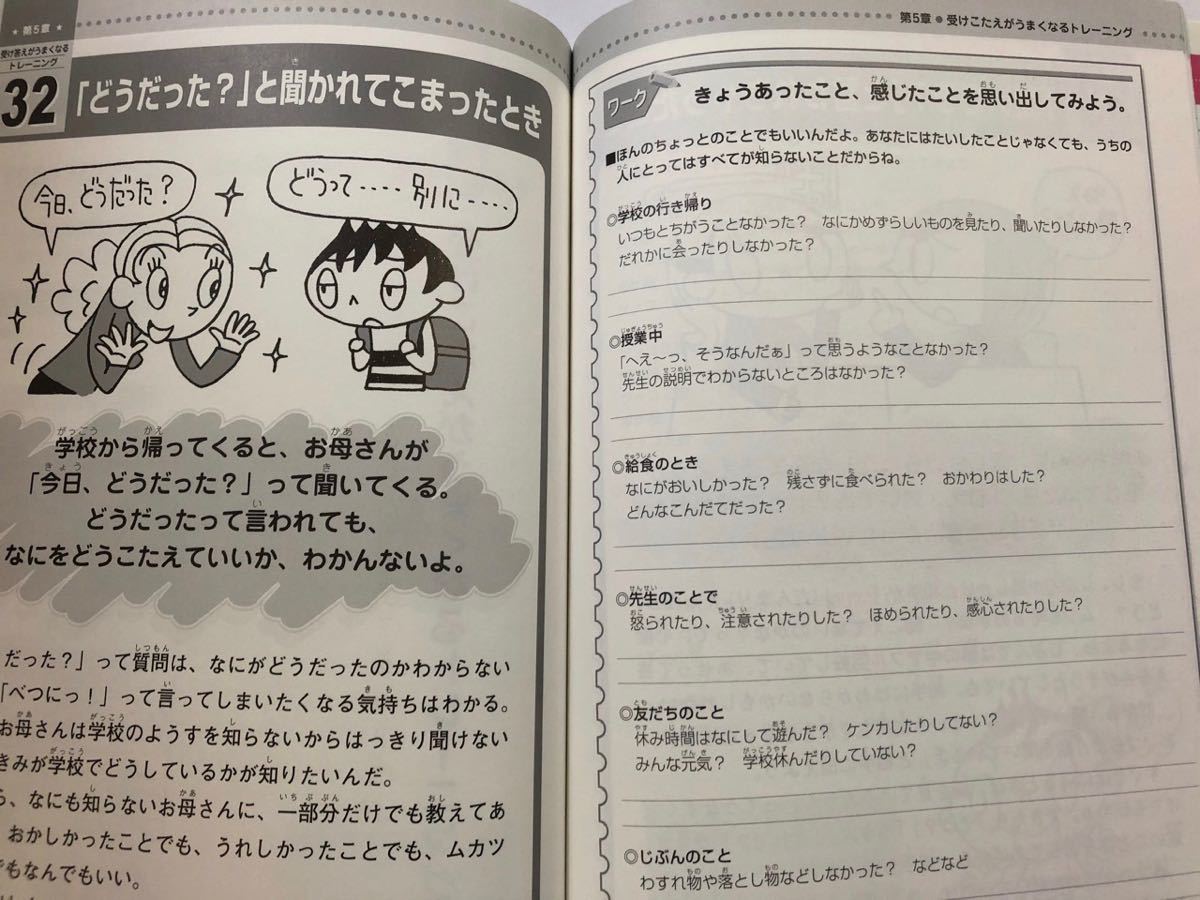 ★ 第5章 ★
受け答えがうまくなる
トレーニング
32
「どうだった?」と聞かれてこまったとき
今日、どうだった?
どうって‥‥‥ 別に‥‥‥
学校から帰ってくると、お母さんが
「今日、どうだった?」って聞いてくる。
どうだったって言われても、
なにをどうこたえていいか、わかんないよ。
だった?」って質問は、なにがどうだったのかわからない
「べつにっ!」って言ってしまいたくなる気持ちはわかる。
お母さんは学校のようすを知らないからはっきり聞けない
きみが学校でどうしているかが知りたいんだ。
ら、なにも知らないお母さんに、一部分だけでも教えてあ
おかしかったことでも、うれしかったことでも、ムカツ
でもなんでもいい。
第5章●受けこたえがうまくなるトレーニング
ワーク
きょうあったこと、感じたことを思い出してみよう。
■ほんのちょっとのことでもいいんだよ。あなたにはたいしたことじゃなくても、うちの
人にとってはすべてが知らないことだからね。
◎学校の行き帰り
いつもとちがうことなかった? なにかめずらしいものを見たり、聞いたりしなかった?
だれかに会ったりしなかった?
◎授業中
「へえ〜っ、そうなんだぁ」って思うようなことなかった?
先生の説明でわからないところはなかった?
◎給食のとき
なにがおいしかった? 残さずに食べられた? おかわりはした?
どんなこんだてだった?
◎先生のことで
怒られたり、注意されたりした? ほめられたり、感心されたりした?
◎友だちのこと
休み時間はなにして遊んだ? ケンカしたりしてない?
みんな元気? 学校休んだりしていない?
◎じぶんのこと
わすれ物や落とし物などしなかった? などなど